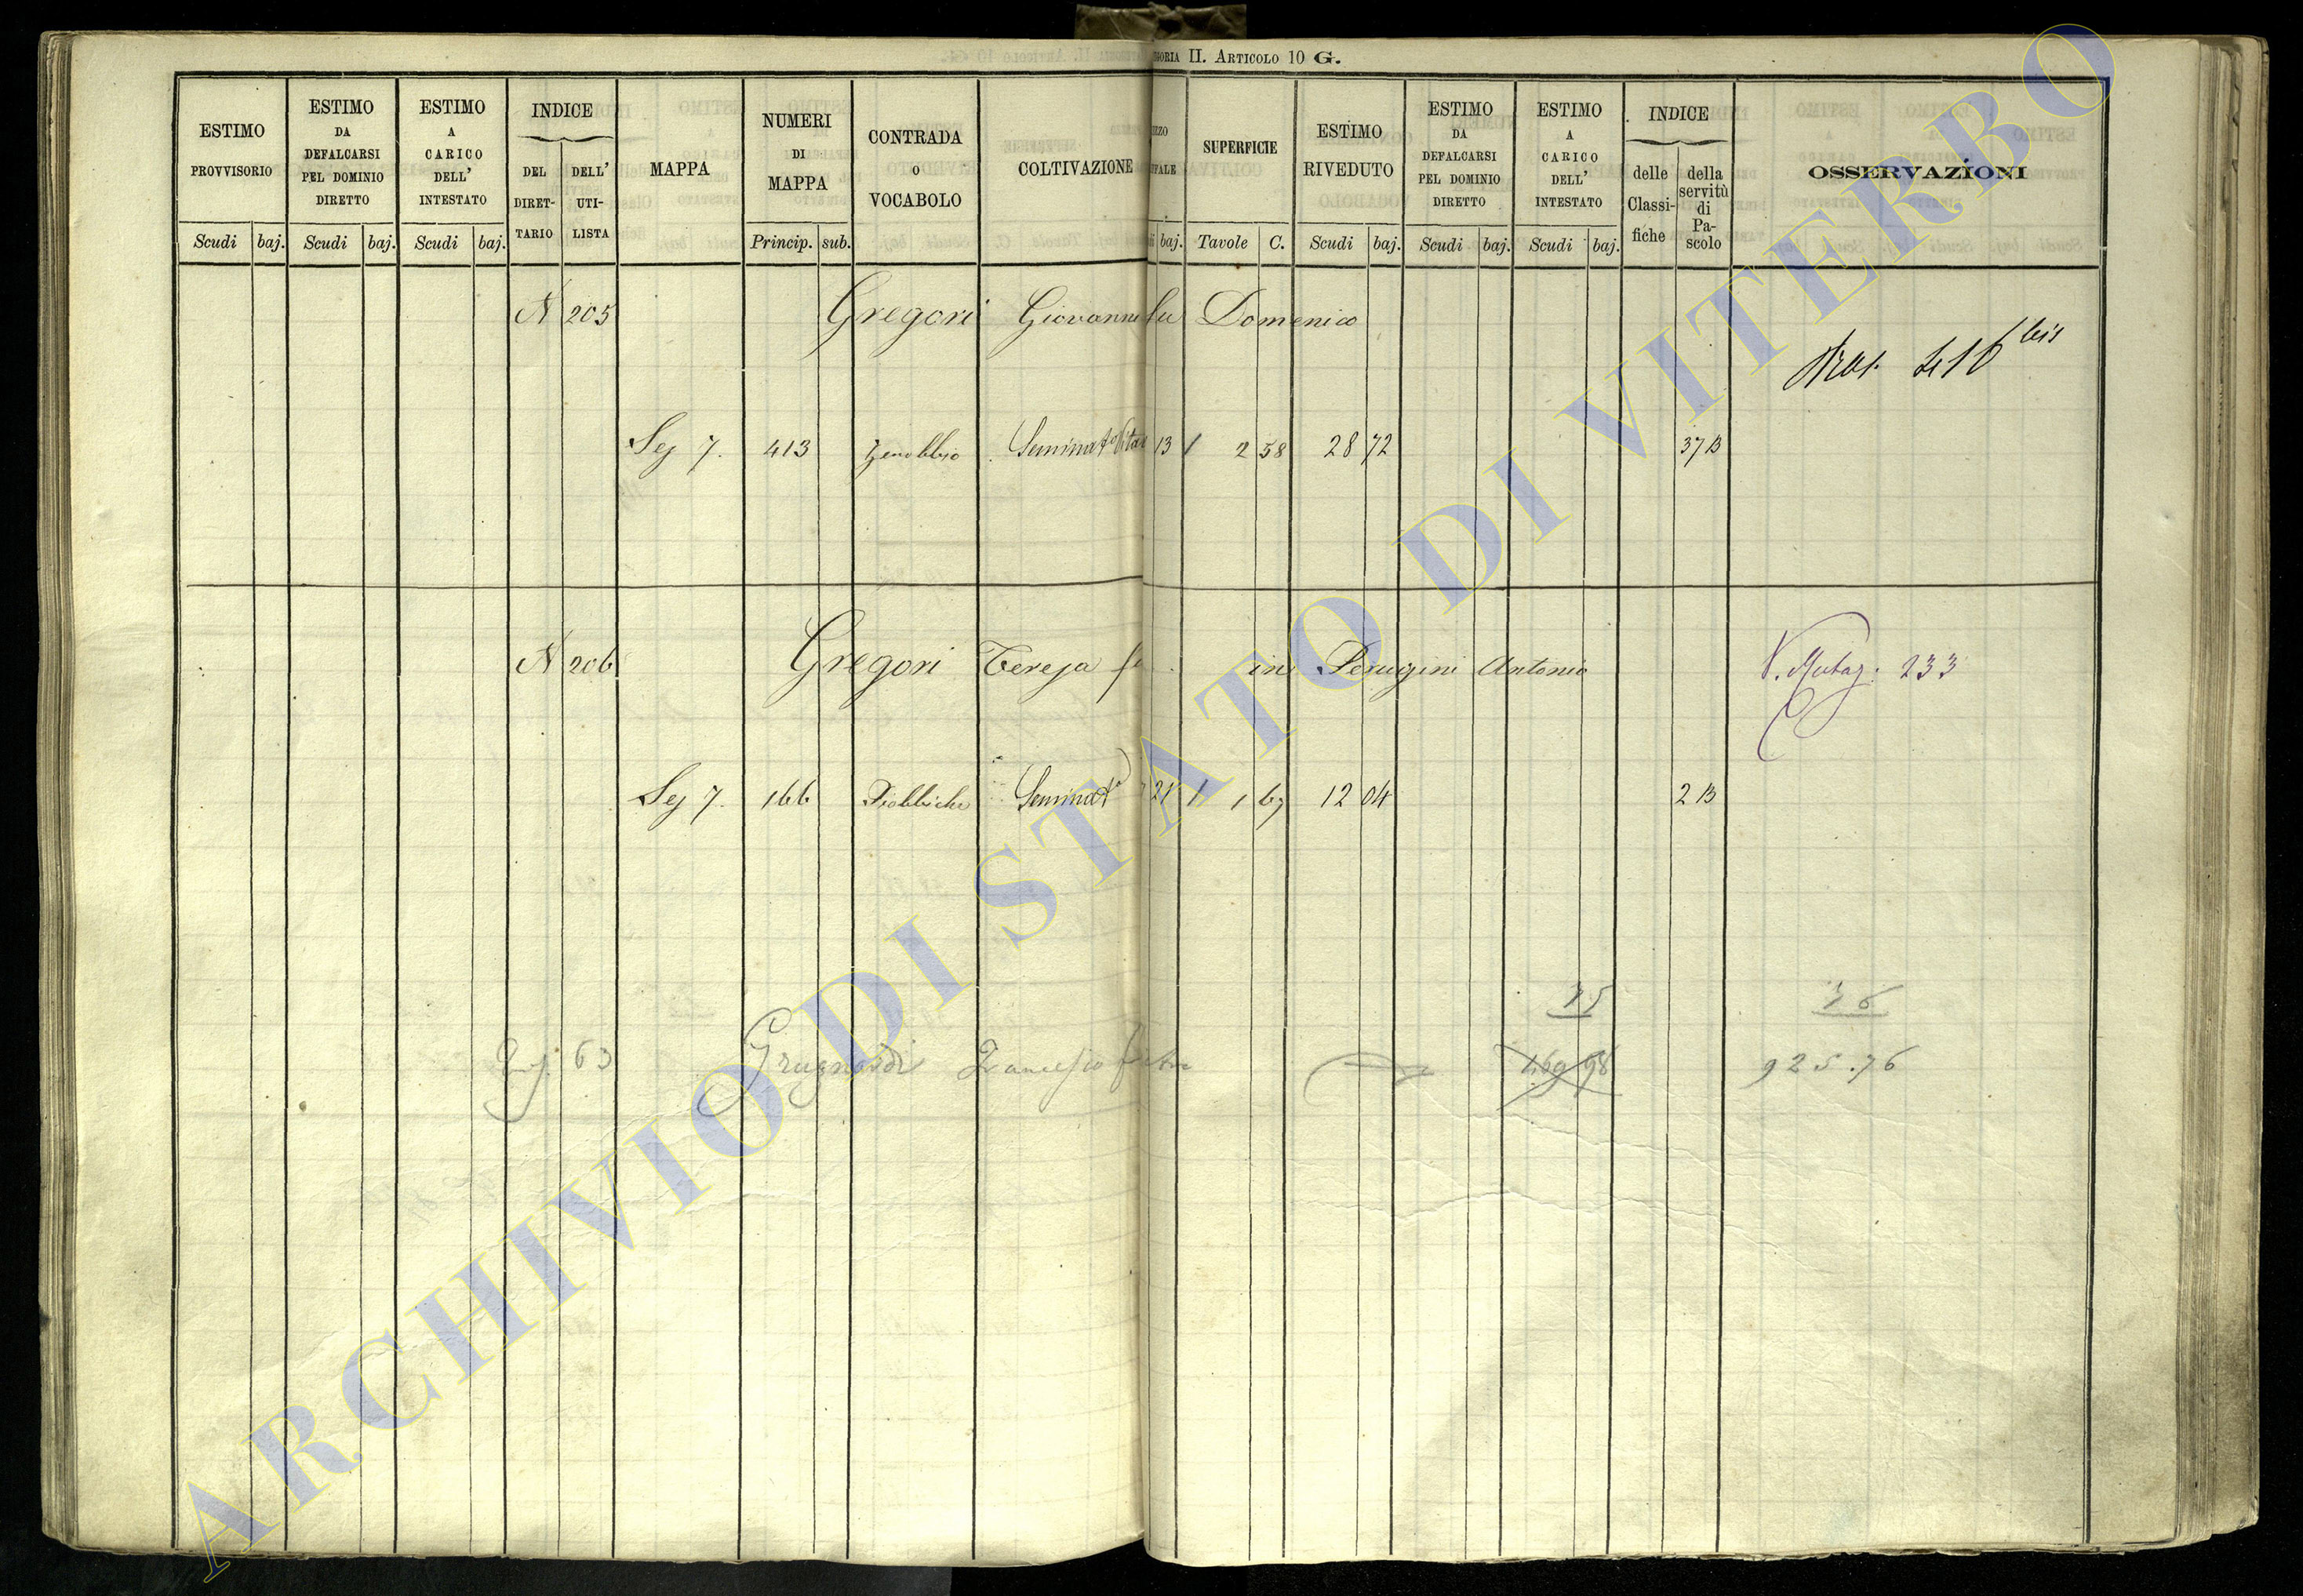 GORIA II. ARTICOLO 10 G.
ESTIMO PROVVISORIO
Scudi baj.
ESTIMO DA DEFALCARSI PEL DOMINIO DIRETTO
Scudi baj.
ESTIMO A CARICO DELL' INTESTATO
Scudi baj.
INDICE
DEL DIRET-TARIO
DELL' UTI-LISTA
MAPPA
NUMERI DI MAPPA
Princip. sub.
CONTRADA O VOCABOLO
COLTIVAZIONE
baj.
SUPERFICIE
Tavole C.
ESTIMO RIVEDUTO
Scudi baj.
ESTIMO DA DEFALCARSI PEL DOMINIO DIRETTO
Scudi baj.
ESTIMO A CARICO DELL' INTESTATO
Scudi baj.
INDICE
delle Classi-fiche
della servitù di Pa-scolo
OSSERVAZIONI
N 205 Gregori Giovanni fu Domenico
bis
Sez 7. 413 13 2 58 28 72 37 B
N 206 Gregori Teresa in Perugini Antonio V. Mutaz: 233
Sez 7. 166 Seminat° 21 1 67 12 04 2 B
75 76
63 Francesco 925.76
ARCHIVIO DI STATO DI VITERBO